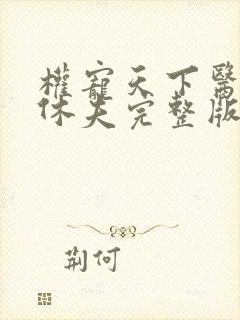 權寵天下醫
休夫完整版
荆何